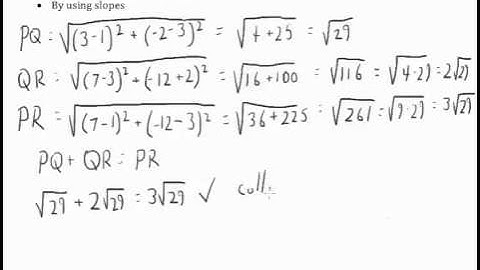 • By using slopes
PQ = √((3-1)² + (-2-3)²) = √(4+25) = √29
QR = √((7-3)² + (-12+2)²) = √(16+100) = √116 = √(4·29) = 2√29
PR = √((7-1)² + (-12-3)²) = √(36+225) = √261 = √(9·29) = 3√29
PQ + QR = PR
√29 + 2√29 = 3√29 ✓ coll